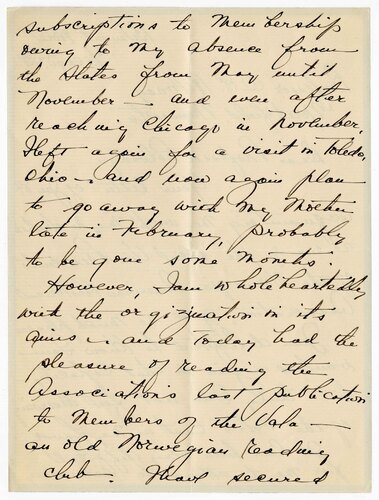 subscriptions to Membership
owing to my absence from
the States from May until
November – and even after
reaching Chicago in November,
I left again for a visit in Toledo,
Ohio – and now again plan
to go away with my Mother
late in February, probably
to be gone some months.
However, I am wholeheartedly
with the orgization in its
aims – and today had the
pleasure of reading the
Associations last publication
to Members of the Vala –
an old Norwegian reading
club. I have secured